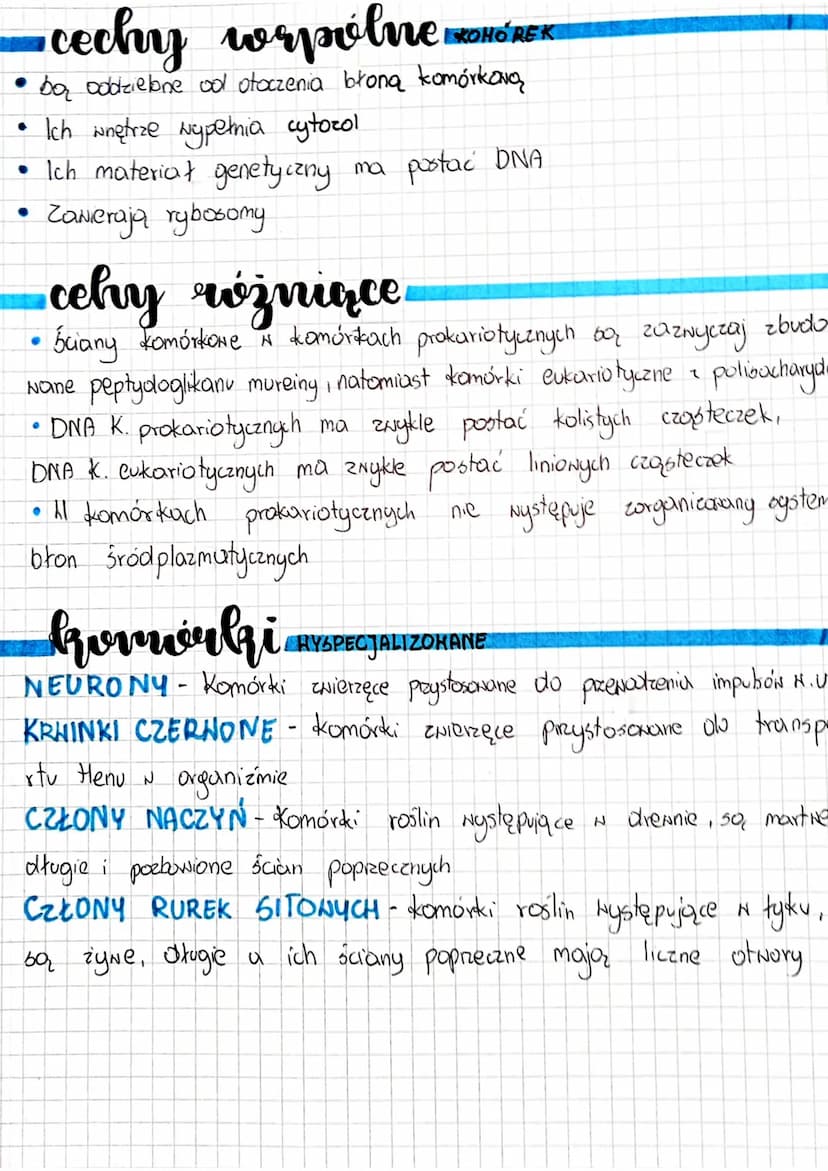 cechy wspólne KOMÓREK
• są oddzielne od otoczenia błoną komórkową
• Ich wnętrze wypełnia cytozol
• Ich materiał genetyczny ma postać DNA
• Zawierają rybosomy
cehy różniące
• Ściany komórkowe w komórkach prokariotycznych są zazwyczaj zbudo
wane peptydoglikanu mureiny, natomiast komórki eukariotyczne z polisacharyd
• DNA K. prokariotycznych ma zwykle postać kolistych cząsteczek,
DNA K. eukariotycznych ma zwykle postać liniowych cząsteczek
• W komórkach prokariotycznych nie występuje zorganizowany system
błon śródplazmatycznych
komórki WYSPECJALIZOWANE
NEURONY - Komórki zwierzęce przystosowane do przewodzenia impulsów N.U
KRWINKI CZERWONE - komórki zwierzęce przystosowane do transpo
rtu tlenu w organiźmie
CZŁONY NACZYŃ - Komórki roślin występujące w drewnie, są martwe
długie i pozbawione ścian poprzecznych
CZŁONY RUREK SITOWYCH - komórki roślin występujące w łyku,
są żywe, długie a ich ściany poprzeczne mają liczne otwory